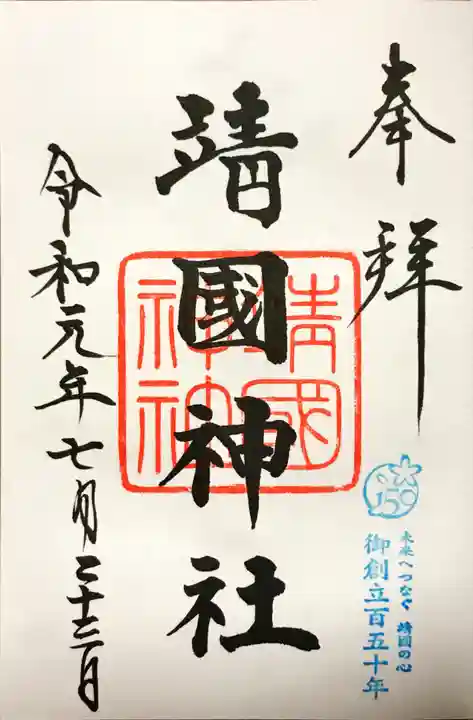 奉拝
150
未来へつなぐ 靖國の心
御創立百五十年
靖國神社
靖國神社
令和元年七月二十三日